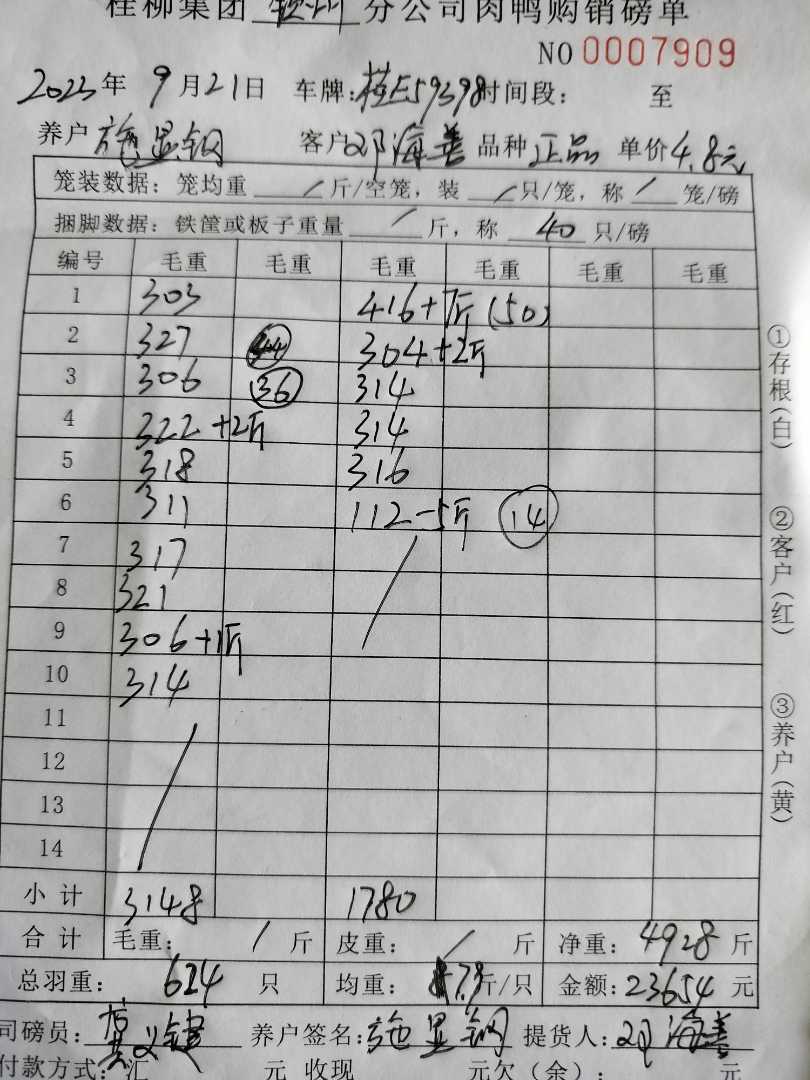 桂柳集团 钦州 分公司肉鸭购销磅单
NO 0007909
2023年 9月21日 车牌:桂E59398时间段: 至
养户 施显钢 客户邓海善 品种 正品 单价4.8元
笼装数据: 笼均重 / 斤/空笼, 装 / 只/笼, 称 / 笼/磅
捆脚数据: 铁筐或板子重量 / 斤, 称 40 只/磅
编号 毛重 毛重 毛重 毛重 毛重 毛重
1 303 416+7斤(50)
2 327 304+2斤
3 306 36 314
4 322+2斤 314
5 318 316
6 311 112-5斤 14
7 317
8 321
9 306+1斤
10 314
11
12
13
14
小计 3148 1780
合计 毛重: / 斤 皮重: / 斤 净重: 4928 斤
总羽重: 624 只 均重: 7.9斤/只 金额:23654 元
司磅员: 养户签名:施显钢 提货人:邓海善
付款方式:汇 元 收现 元欠(余): 元
①存根(白)
②客户(红)
③养户(黄)